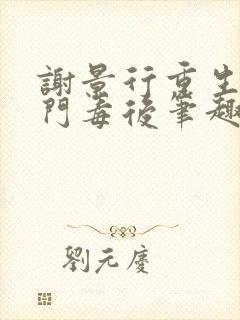 謝景行重生
門毒後筆趣
劉元慶